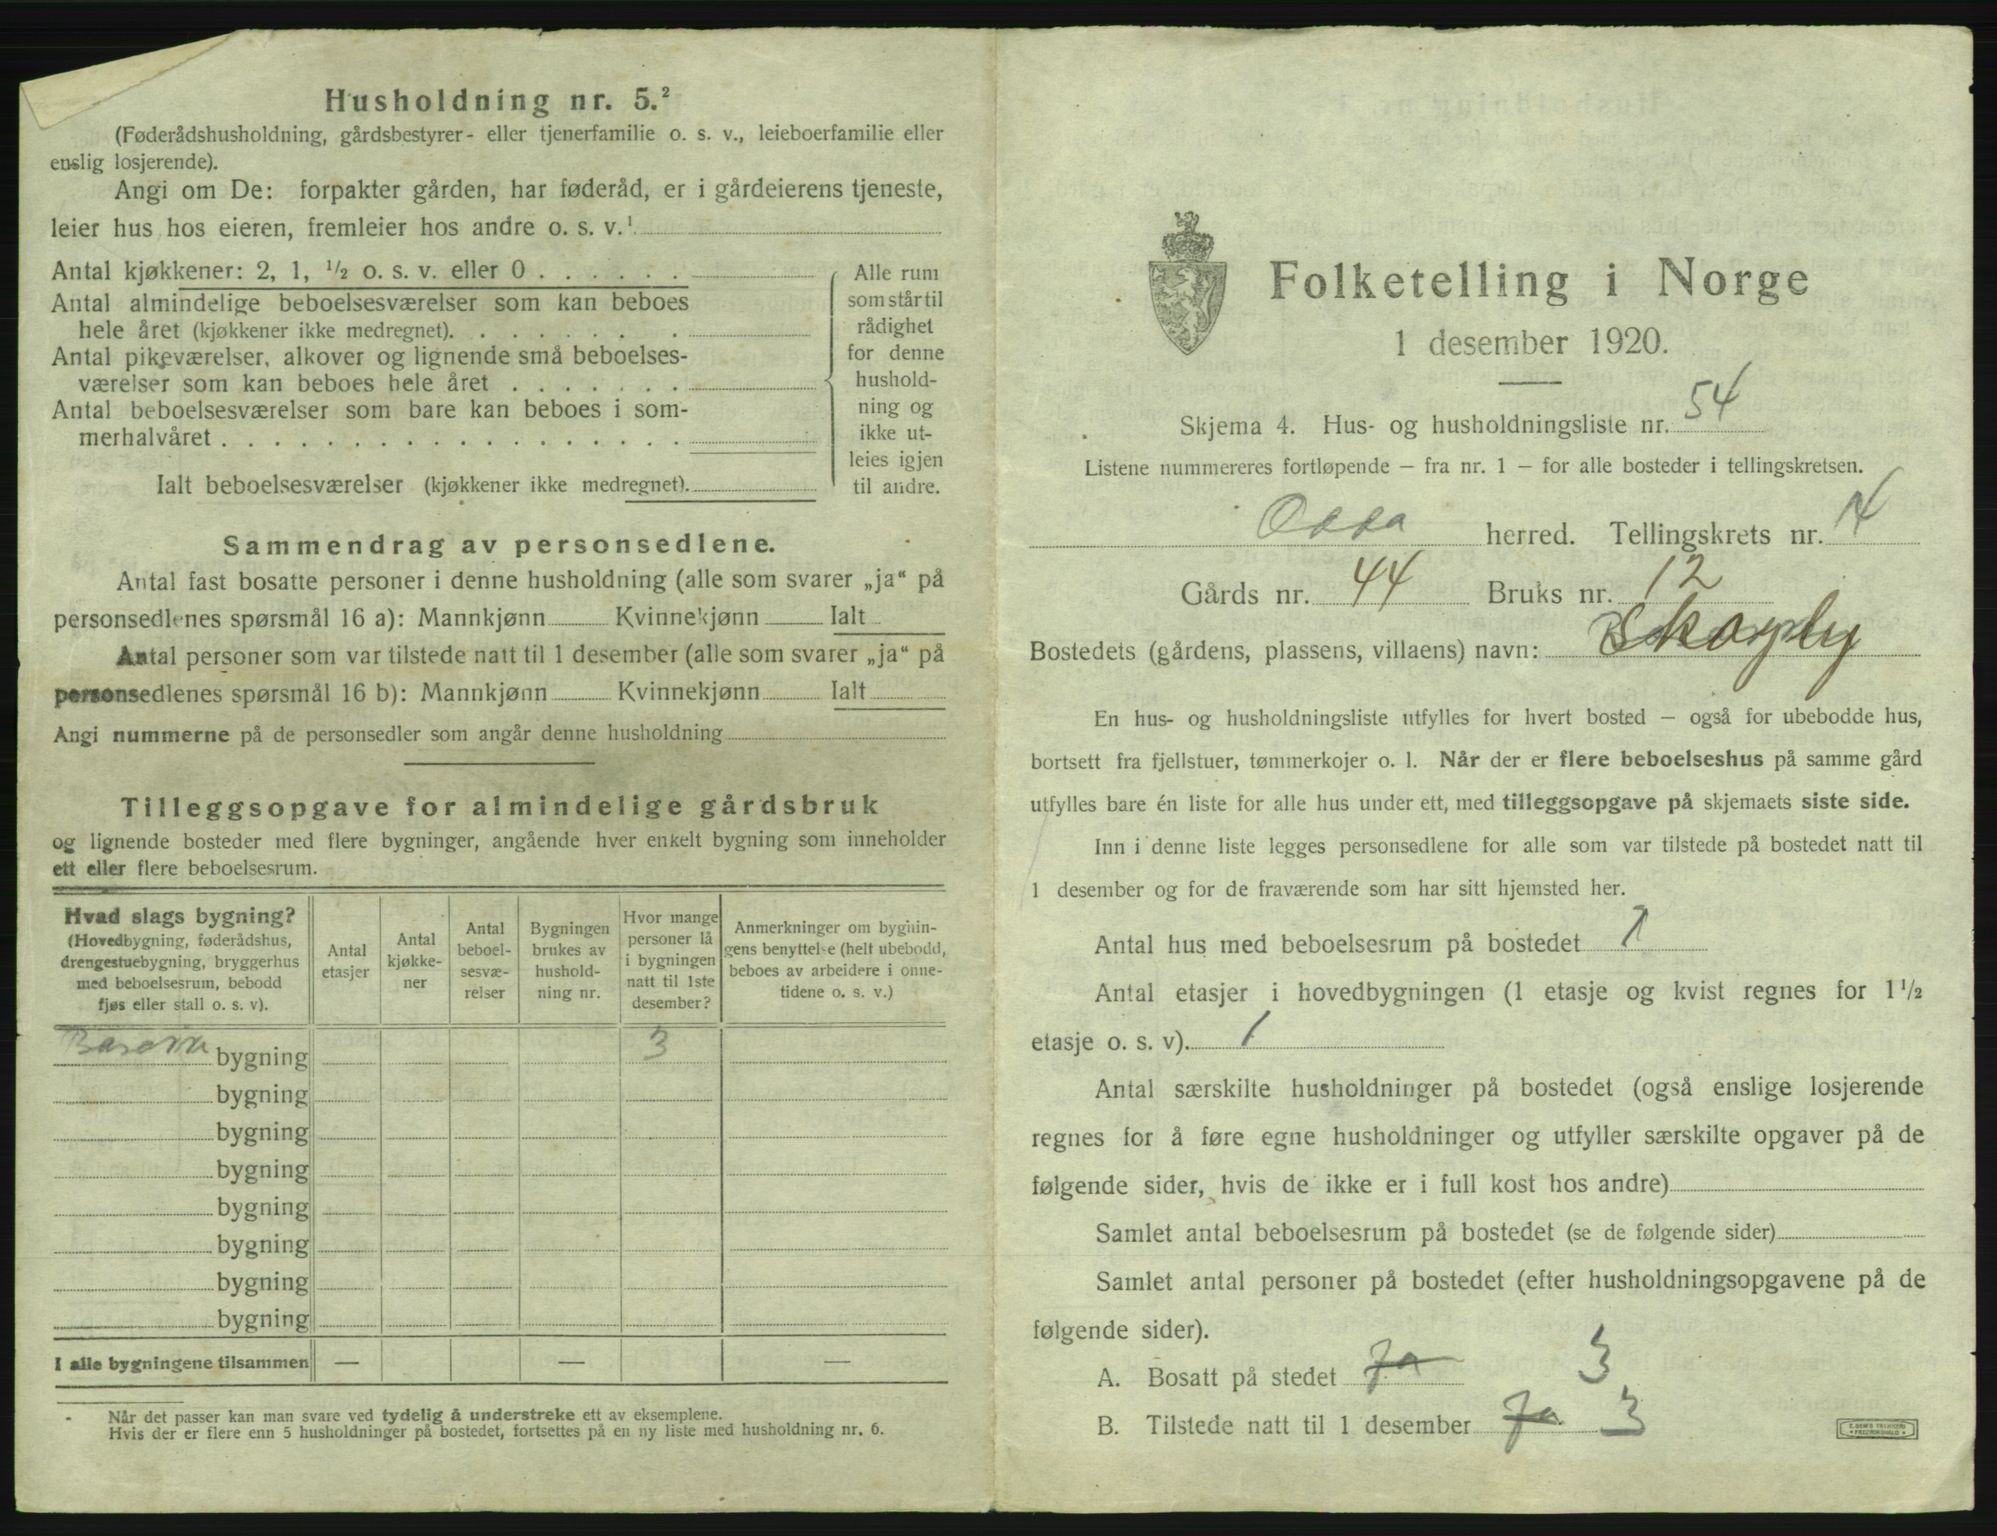 Husholdning nr. 5.²
(Føderådshusholdning, gårdsbestyrer- eller tjenerfamilie o. s. v., leieboerfamilie eller
enslig losjerende).
Angi om De: forpakter gården, har føderåd, er i gårdeierens tjeneste,
leier hus hos eieren, fremleier hos andre o. s. v.¹
Antal kjøkkener: 2, 1, ½ o. s. v. eller 0
Antal almindelige beboelsesværelser som kan beboes
hele året (kjøkkener ikke medregnet).
Antal pikeværelser, alkover og lignende små beboelses-
værelser som kan beboes hele året
Antal beboelsesværelser som bare kan beboes i som-
merhalvåret
Ialt beboelsesværelser (kjøkkener ikke medregnet).
Alle rum
som står til
rådighet
for denne
hushold-
ning og
ikke ut-
leies igjen
til andre.
Sammendrag av personsedlene.
Antal fast bosatte personer i denne husholdning (alle som svarer „ja“ på
personsedlenes spørsmål 16 a): Mannkjønn Kvinnekjønn Ialt
Antal personer som var tilstede natt til 1 desember (alle som svarer „ja“ på
personsedlenes spørsmål 16 b): Mannkjønn Kvinnekjønn Ialt
Angi nummerne på de personsedler som angår denne husholdning
Tilleggsopgave for almindelige gårdsbruk
og lignende bosteder med flere bygninger, angående hver enkelt bygning som inneholder
ett eller flere beboelsesrum.
Hvad slags bygning?
(Hovedbygning, føderådshus,
drengestuebygning, bryggerhus
med beboelsesrum, bebodd
fjøs eller stall o. s. v).
Antal
etasjer
Antal
kjøkke-
ner
Antal
beboel-
sesvæ-
relser
Bygningen
brukes av
hushold-
ning nr.
Hvor mange
personer lå
i bygningen
natt til 1ste
desember?
Anmerkninger om bygnin-
gens benyttelse (helt ubebodd,
beboes av arbeidere i onne-
tidene o. s. v.)
bygning 3
bygning
bygning
bygning
bygning
bygning
bygning
bygning
I alle bygningene tilsammen — — —
Når det passer kan man svare ved tydelig å understreke ett av eksemplene.
Hvis der er flere enn 5 husholdninger på bostedet, fortsettes på en ny liste med husholdning nr. 6.
Folketelling i Norge
1 desember 1920.
Skjema 4. Hus- og husholdningsliste nr. 54
Listene nummereres fortløpende — fra nr. 1 — for alle bosteder i tellingskretsen.
Odda herred. Tellingskrets nr. 14
Gårds nr. 44 Bruks nr. 12
Bostedets (gårdens, plassens, villaens) navn: Skogly
En hus- og husholdningsliste utfylles for hvert bosted — også for ubebodde hus,
bortsett fra fjellstuer, tømmerkojer o. l. Når der er flere beboelseshus på samme gård
utfylles bare én liste for alle hus under ett, med tilleggsopgave på skjemaets siste side.
Inn i denne liste legges personsedlene for alle som var tilstede på bostedet natt til
1 desember og for de fraværende som har sitt hjemsted her.
Antal hus med beboelsesrum på bostedet 1
Antal etasjer i hovedbygningen (1 etasje og kvist regnes for 1½
etasje o. s. v). 1
Antal særskilte husholdninger på bostedet (også enslige losjerende
regnes for å føre egne husholdninger og utfyller særskilte opgaver på de
følgende sider, hvis de ikke er i full kost hos andre)
Samlet antal beboelsesrum på bostedet (se de følgende sider)
Samlet antal personer på bostedet (efter husholdningsopgavene på de
følgende sider).
A. Bosatt på stedet Ja 3
B. Tilstede natt til 1 desember Ja 3